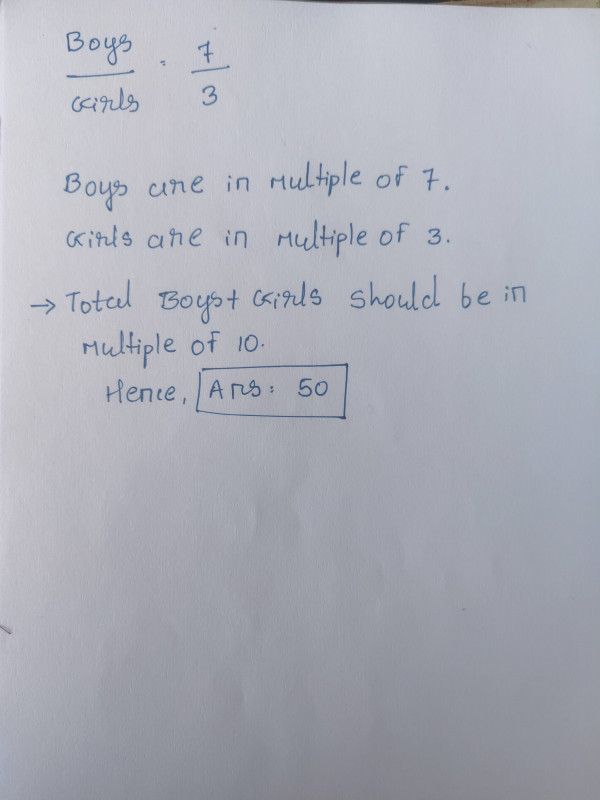 Boys / Girls = 7 / 3
Boys are in multiple of 7.
Girls are in multiple of 3.
→ Total Boys + Girls should be in
multiple of 10.
Hence, Ans: 50